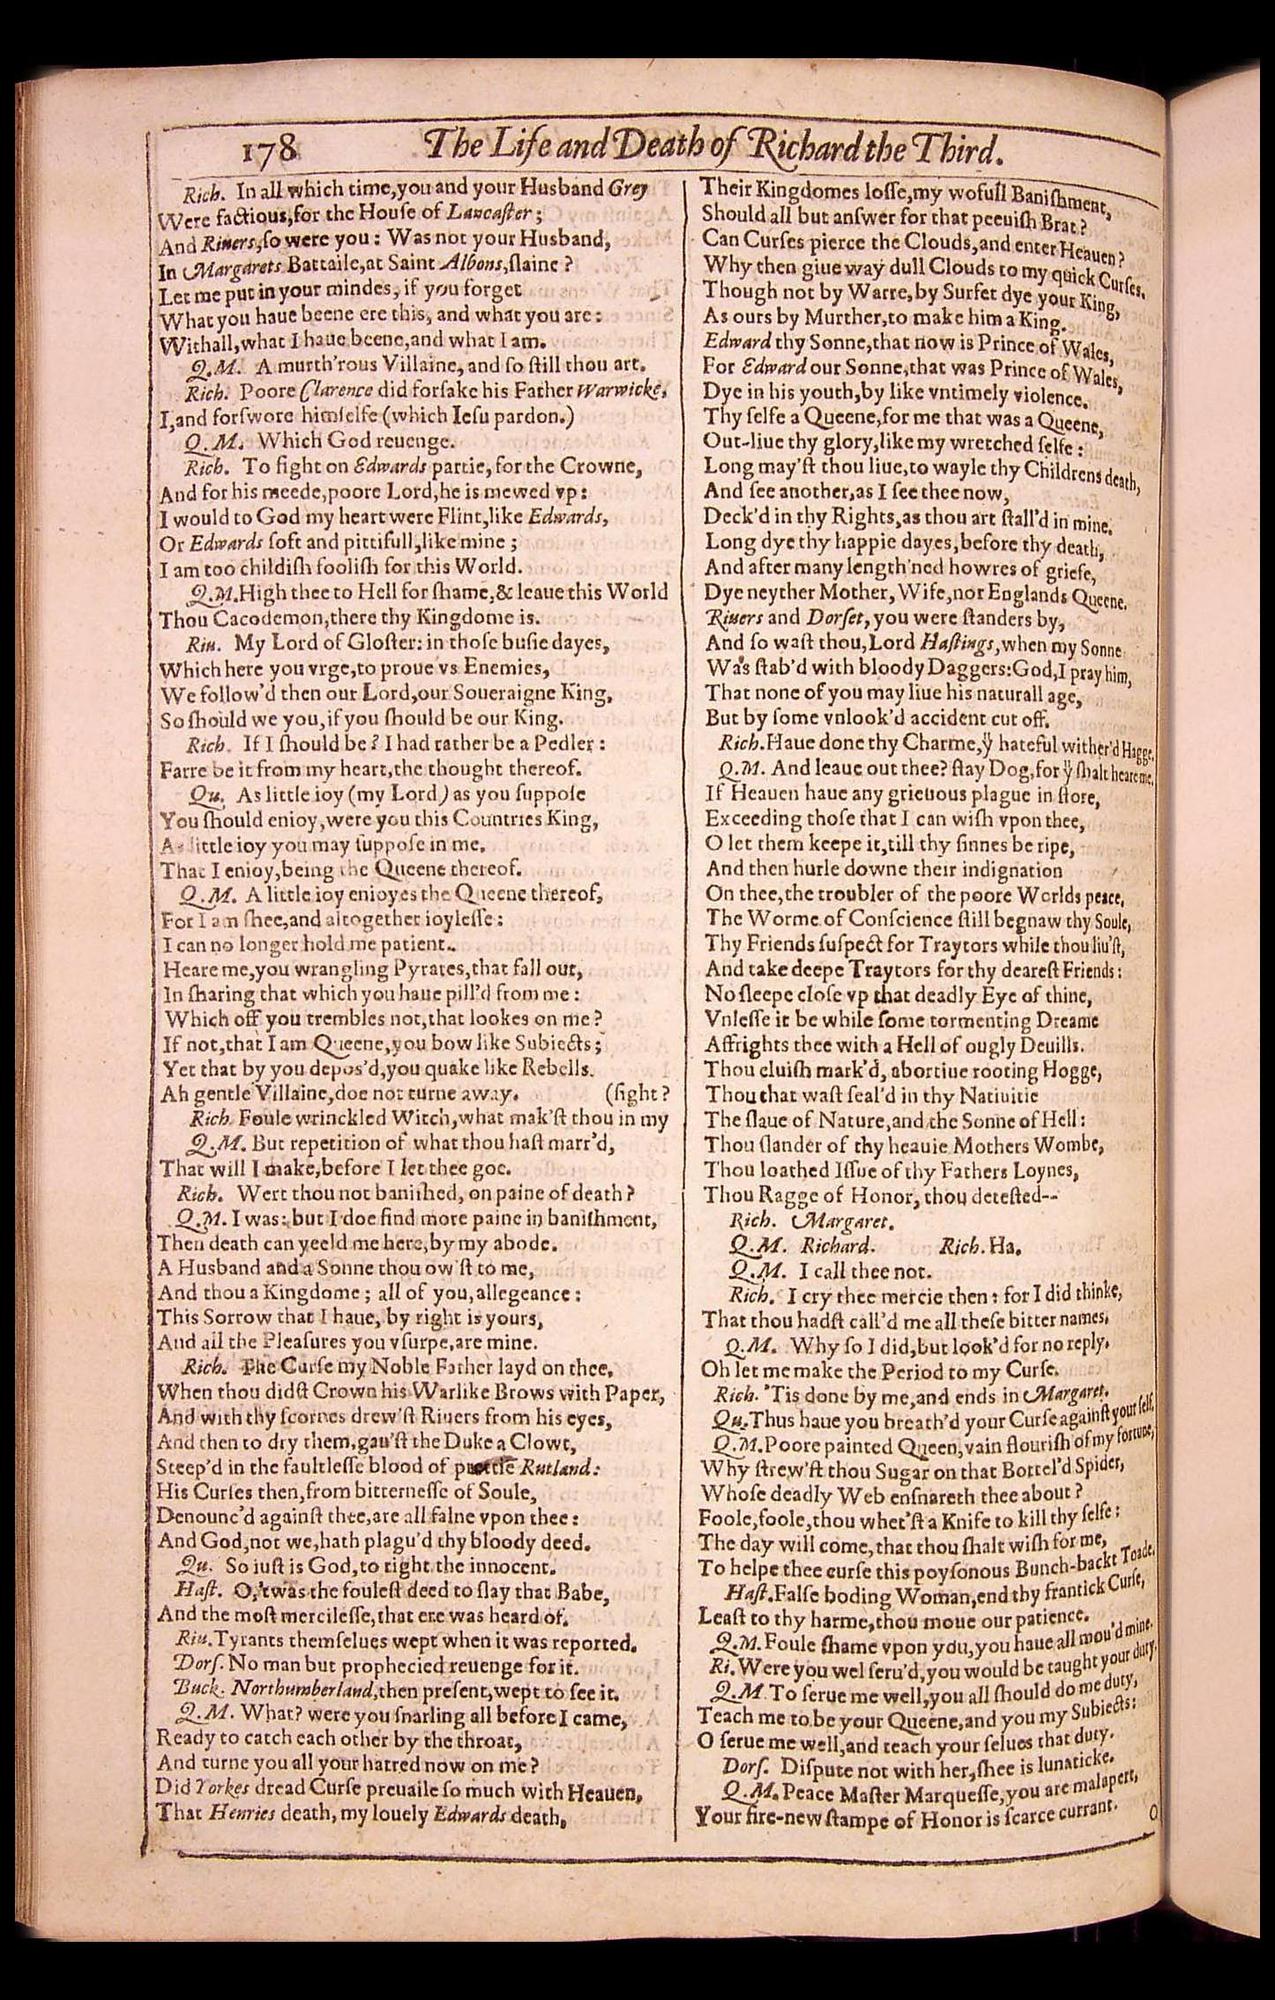 178 The Life and Death of Richard the Third.
Rich. In all which time,you and your Husband Grey
Were factious,for the Houſe of Lancaſter;
And Riuers,ſo were you: Was not your Husband,
In Margarets Battaile,at Saint Albons,ſlaine?
Let me put in your mindes, if you forget
What you haue beene ere this, and what you are:
Withall,what I haue beene,and what I am.
Q.M. A murth'rous Villaine, and ſo ſtill thou art.
Rich. Poore Clarence did forſake his Father Warwicke,
I,and forſwore himſelfe (which Ieſu pardon.)
Q.M. Which God reuenge.
Rich. To fight on Edwards partie, for the Crowne,
And for his meede,poore Lord,he is mewed vp:
I would to God my heart were Flint,like Edwards,
Or Edwards ſoft and pittifull,like mine;
I am too childiſh fooliſh for this World.
Q.M.High thee to Hell for ſhame,& leaue this World
Thou Cacodemon,there thy Kingdome is.
Riu. My Lord of Gloſter: in thoſe buſie dayes,
Which here you vrge,to proue vs Enemies,
We follow'd then our Lord,our Soueraigne King,
So ſhould we you,if you ſhould be our King.
Rich. If I ſhould be? I had rather be a Pedler:
Farre be it from my heart,the thought thereof.
Qu. As little ioy (my Lord) as you ſuppoſe
You ſhould enioy,were you this Countries King,
As little ioy you may ſuppoſe in me,
That I enioy,being the Queene thereof.
Q.M. A little ioy enioyes the Queene thereof,
For I am ſhee,and altogether ioyleſſe:
I can no longer hold me patient.
Heare me,you wrangling Pyrates,that fall out,
In ſharing that which you haue pill'd from me:
Which off you trembles not,that lookes on me?
If not,that I am Queene,you bow like Subiects;
Yet that by you depos'd,you quake like Rebells.
Ah gentle Villaine,doe not turne away. (ſight?
Rich. Foule wrinckled Witch,what mak'ſt thou in my
Q.M. But repetition of what thou haſt marr'd,
That will I make,before I let thee goe.
Rich. Wert thou not baniſhed, on paine of death?
Q.M. I was: but I doe find more paine in baniſhment,
Then death can yeeld me here,by my abode.
A Husband and a Sonne thou ow'ſt to me,
And thou a Kingdome; all of you,allegeance:
This Sorrow that I haue, by right is yours,
And all the Pleaſures you vſurpe,are mine.
Rich. The Curſe my Noble Father layd on thee,
When thou didſt Crown his Warlike Brows with Paper,
And with thy ſcornes drew'ſt Riuers from his eyes,
And then to dry them,gau'ſt the Duke a Clowt,
Steep'd in the faultleſſe blood of Rutland:
His Curſes then,from bitterneſſe of Soule,
Denounc'd againſt thee,are all falne vpon thee:
And God,not we,hath plagu'd thy bloody deed.
Qu. So iuſt is God,to right the innocent.
Haſt. O,'twas the fouleſt deed to ſlay that Babe,
And the moſt mercileſſe,that ere was heard of.
Riu.Tyrants themſelues wept when it was reported.
Dorſ. No man but prophecied reuenge for it.
Buck. Northumberland,then preſent,wept to ſee it.
Q.M. What? were you ſnarling all before I came,
Ready to catch each other by the throat,
And turne you all your hatred now on me?
Did Yorkes dread Curſe preuaile ſo much with Heauen,
That Henries death, my louely Edwards death,
Their Kingdomes loſſe,my wofull Baniſhment,
Should all but anſwer for that peeuiſh Brat?
Can Curſes pierce the Clouds,and enter Heauen?
Why then giue way dull Clouds to my quick Curſes.
Though not by Warre,by Surfet dye your King,
As ours by Murther,to make him a King.
Edward thy Sonne,that now is Prince of Wales,
For Edward our Sonne,that was Prince of Wales,
Dye in his youth,by like vntimely violence.
Thy ſelfe a Queene,for me that was a Queene,
Out-liue thy glory,like my wretched ſelfe:
Long may'ſt thou liue,to wayle thy Childrens death,
And ſee another,as I ſee thee now,
Deck'd in thy Rights,as thou art ſtall'd in mine.
Long dye thy happie dayes,before thy death,
And after many length'ned howres of griefe,
Dye neyther Mother, Wife,nor Englands Queene.
Riuers and Dorſet, you were ſtanders by,
And ſo waſt thou,Lord Haſtings,when my Sonne
Was ſtab'd with bloody Daggers:God,I pray him,
That none of you may liue his naturall age,
But by ſome vnlook'd accident cut off.
Rich.Haue done thy Charme,yͧ hateful wither'd Hagge.
Q.M. And leaue out thee? ſtay Dog,for yͧ ſhalt heare me.
If Heauen haue any grieuous plague in ſtore,
Exceeding thoſe that I can wiſh vpon thee,
O let them keepe it,till thy ſinnes be ripe,
And then hurle downe their indignation
On thee,the troubler of the poore Worlds peace.
The Worme of Conſcience ſtill begnaw thy Soule,
Thy Friends ſuſpect for Traytors while thou liu'ſt,
And take deepe Traytors for thy deareſt Friends:
No ſleepe cloſe vp that deadly Eye of thine,
Vnleſſe it be while ſome tormenting Dreame
Affrights thee with a Hell of ougly Deuills.
Thou eluiſh mark'd, abortiue rooting Hogge,
Thou that waſt ſeal'd in thy Natiuitie
The ſlaue of Nature,and the Sonne of Hell:
Thou ſlander of thy heauie Mothers Wombe,
Thou loathed Iſſue of thy Fathers Loynes,
Thou Ragge of Honor, thou deteſted--
Rich. Margaret.
Q.M. Richard. Rich. Ha.
Q.M. I call thee not.
Rich. I cry thee mercie then: for I did thinke,
That thou hadſt call'd me all theſe bitter names.
Q.M. Why ſo I did,but look'd for no reply.
Oh let me make the Period to my Curſe.
Rich. 'Tis done by me,and ends in Margaret.
Qu.Thus haue you breath'd your Curſe againſt your ſelf.
Q.M.Poore painted Queen,vain flouriſh of my fortune,
Why ſtrew'ſt thou Sugar on that Bottel'd Spider,
Whoſe deadly Web enſnareth thee about?
Foole,foole,thou whet'ſt a Knife to kill thy ſelfe:
The day will come,that thou ſhalt wiſh for me,
To helpe thee curſe this poyſonous Bunch-backt Toade.
Haſt.Falſe boding Woman,end thy frantick Curſe,
Leaſt to thy harme,thou moue our patience.
Q.M.Foule ſhame vpon you,you haue all mou'd mine.
Ri. Were you wel ſeru'd,you would be taught your duty.
Q.M. To ſerue me well,you all ſhould do me duty,
Teach me to be your Queene,and you my Subiects:
O ſerue me well,and teach your ſelues that duty.
Dorſ. Diſpute not with her,ſhee is lunaticke.
Q.M. Peace Maſter Marqueſſe,you are malapert,
Your fire-new ſtampe of Honor is ſcarce currant.
O